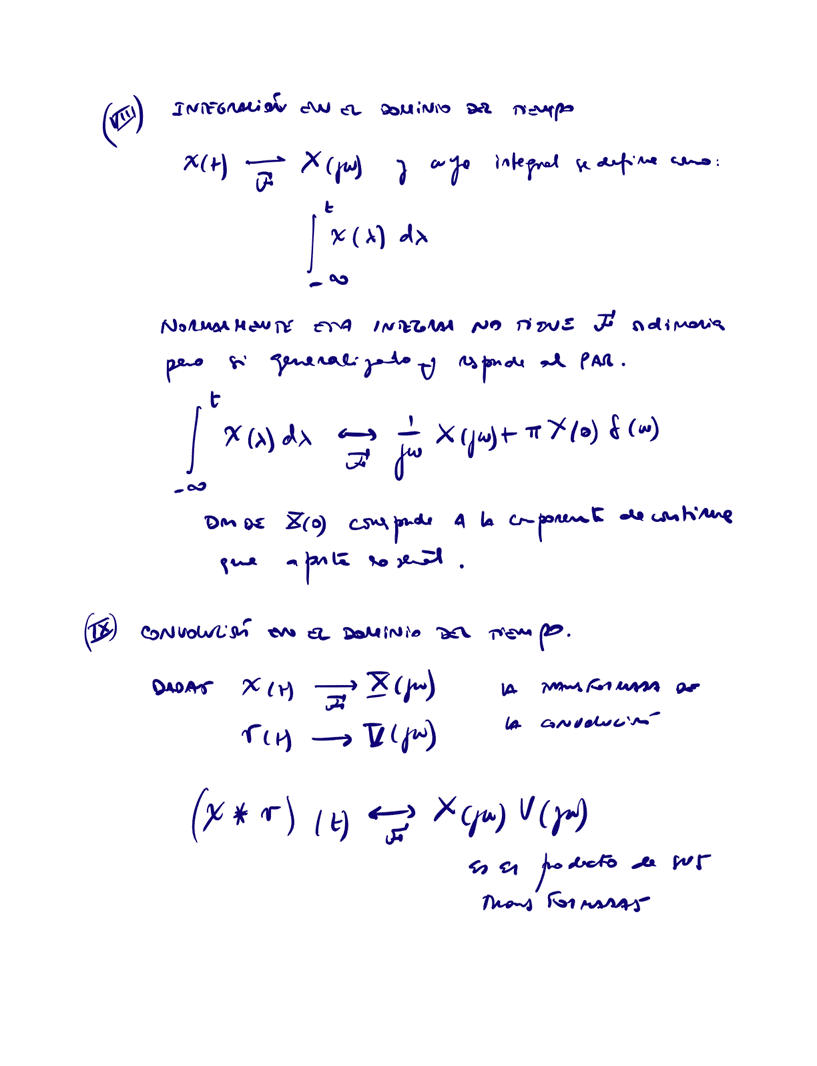 (VIII) INTEGRACIÓN EN EL DOMINIO DEL TIEMPO
x(t) ⟶ℱ X(jω) y cuya integral se define como:
∫_{-∞}^{t} x(λ) dλ
NORMALMENTE ESTA INTEGRAL NO TIENE ℱ ordinaria
pero si generalizada y responde al PAR.
∫_{-∞}^{t} x(λ) dλ ⟷ℱ 1/jω X(jω) + π X(0) δ(ω)
DONDE X(0) corresponde A la componente de continua
que aporta señal.
(IX) CONVOLUCIÓN EN EL DOMINIO DEL TIEMPO.
DADAS x(t) ⟶ℱ X(jω) LA TRANSFORMADA DE
v(t) ⟶ V(jω) LA CONVOLUCIÓN
(x * v) (t) ⟷ℱ X(jω) V(jω)
ES EL producto de sus
TRANSFORMADAS